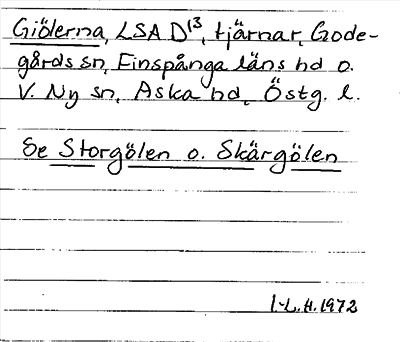 Giölerna, LSA D13, tjärnar, Gode-
gårds sn, Finspånga läns hd o.
V. Ny sn, Aska hd, Östg. l.
Se Storgölen o. Skärgölen
I.-L.H. 1972